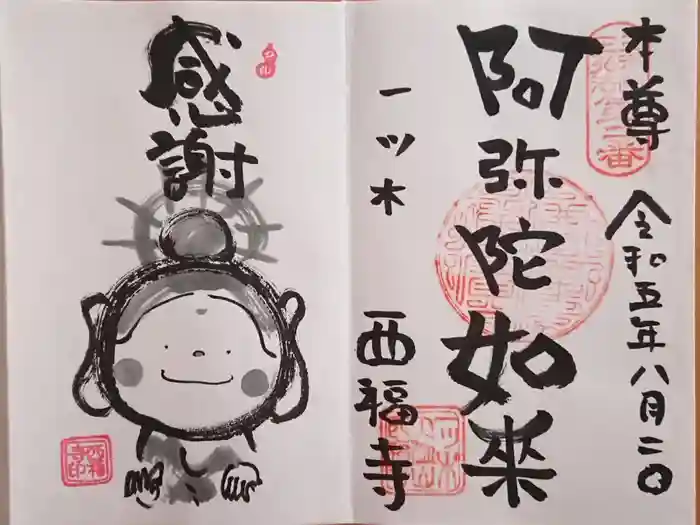 本尊
令和五年八月二〇
阿弥陀如来
一ツ木
西福寺
感謝